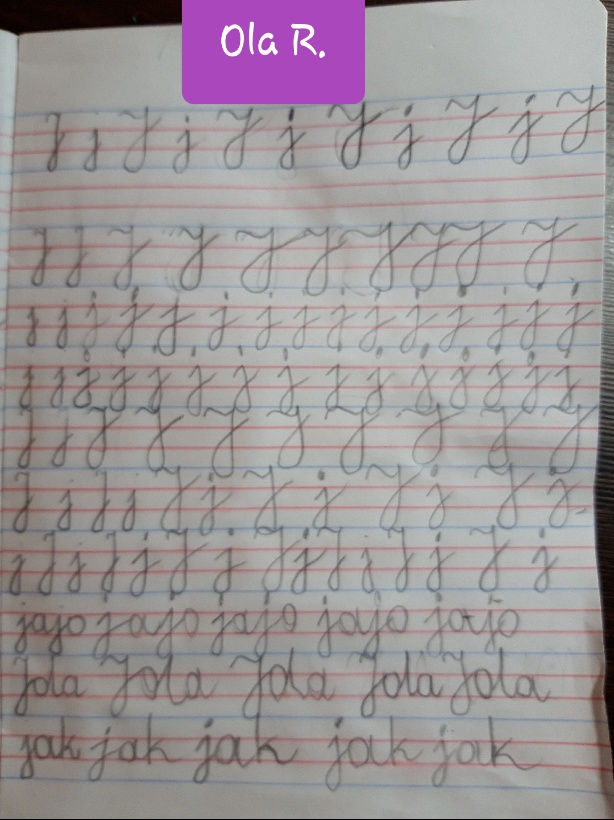 Ola R.
J j J j J j J j J j J
J J J J J J J J J J
j j j j j j j j j j j j j j j
j j j j j j j j j j j j j j j
J j J J J J J J J J
J j J j J j J j J j J j
j J j J j J j J j J j J j J j
jajo jajo jajo jajo jajo
Jola Jola Jola Jola Jola
jak jak jak jak jak